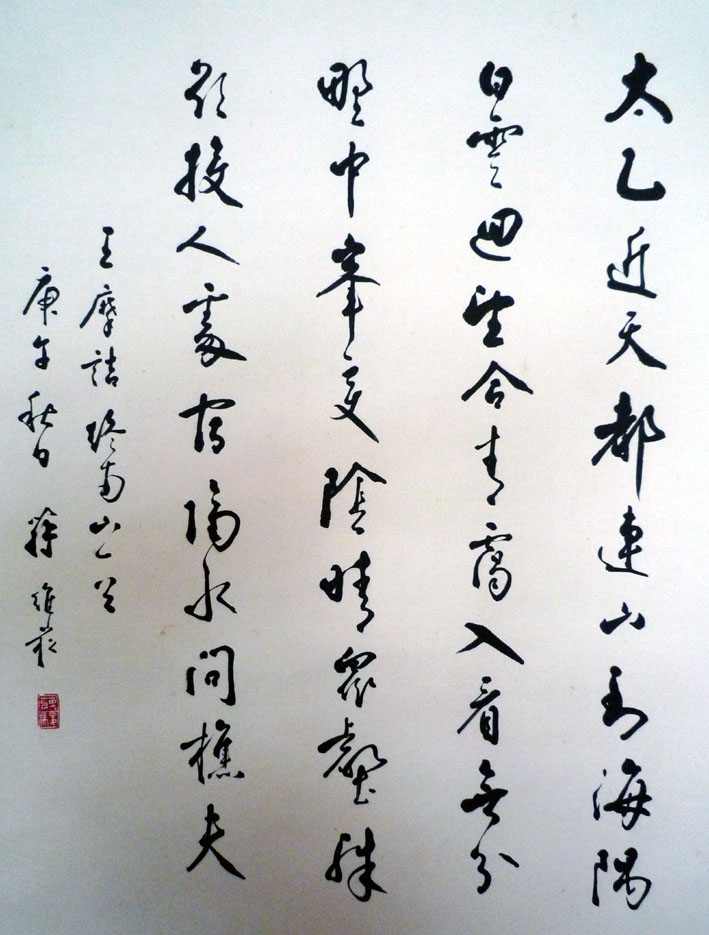 太乙近天都連山到海隅
白雲迴望合青靄入看無分
野中峯變陰晴眾壑殊
欲投人處宿隔水問樵夫
王摩詰終南山
庚午秋日